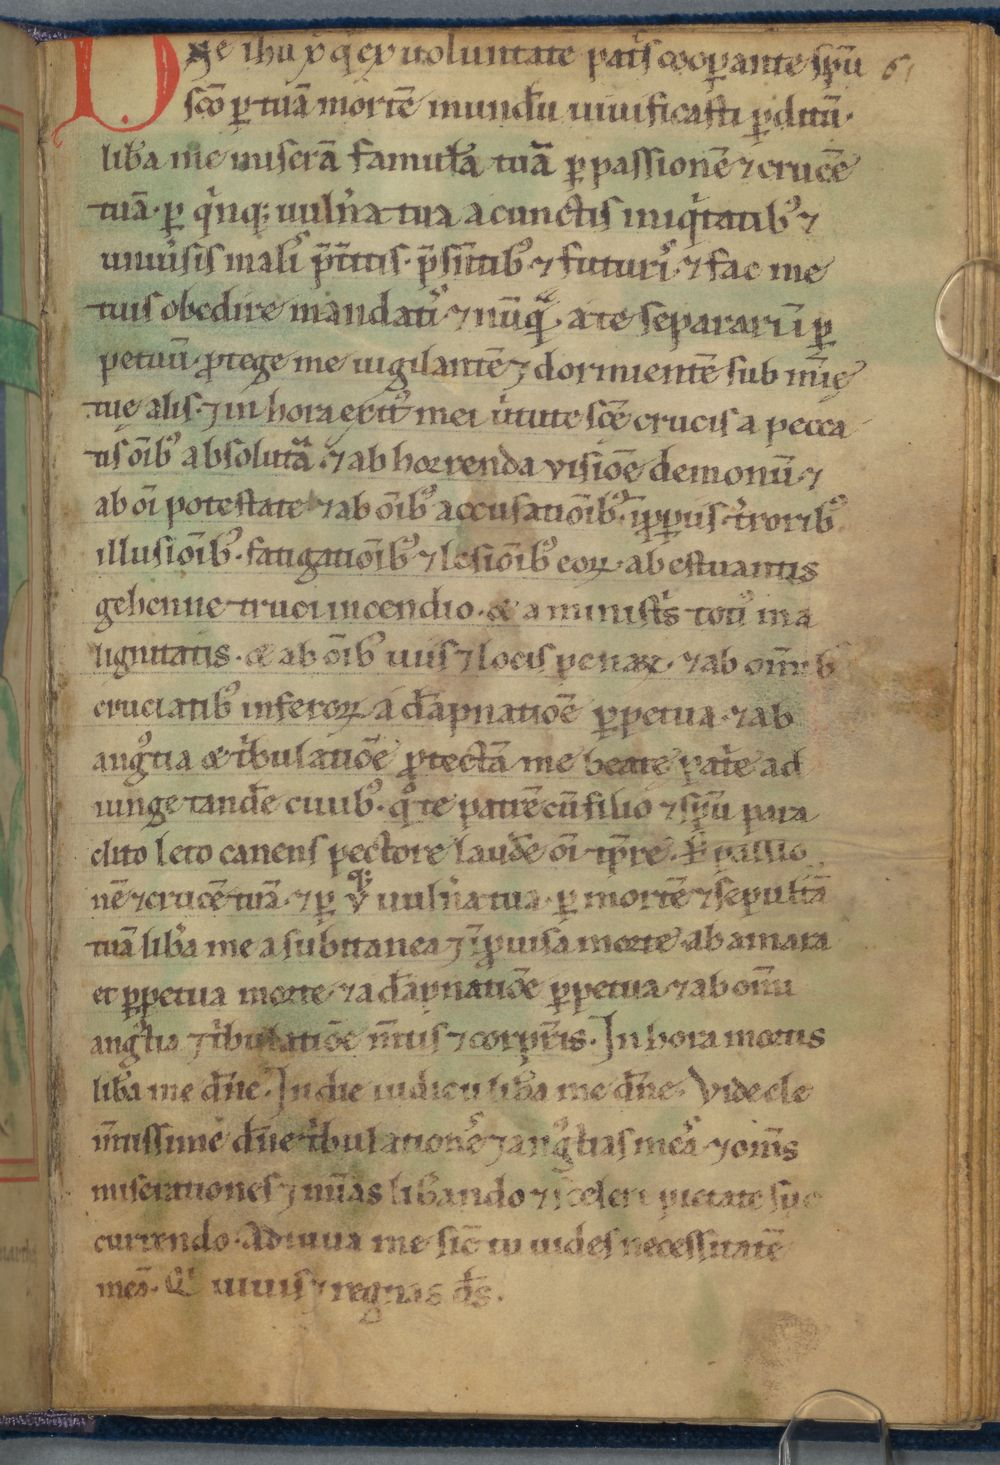 Dn̄e ihu xp̄ q̇ ex uoluntate pat̄s cooꝑante sp̄u 61
sc̄o ꝑ tuā mortē mund̄u uiuificasti ꝑditū·
lib̄a me miserā famul̄a tuā ꝑ passionē ⁊ crucē
tuā· ꝑ q̇nq; uuln̄a tua a cunctis iniq̇tatib᷒ ⁊
uniu̓sis malis p̄t̄itis· p̄sn̄tib᷒ ⁊ futuris ⁊ fac me
tuis obedire mandatis ⁊ nūqᷓ a te separari ī ꝑ
petuū· ꝓtege me uigilantē ⁊ dormientē sub m̄ie
tuę alis· ⁊ in hora exit᷒ mei u̓tute sc̄e crucis a pecca
tis ōib᷒ absolutā· ⁊ ab horrenda visiōe demonū· ⁊
ab ōi potestate ⁊ ab ōib᷒ accusatiōib᷒· t̓rorib᷒
illusiōib᷒· fatigatiōib᷒ ⁊ lesiōib᷒ eoꝝ· ab estuantis
gehenne truci incendio· & a minist̓s toti᷒ ma
lignitatis· & ab ōib᷒ uiis ⁊ locis penaꝝ· ⁊ ab om̄ib᷒
cruciatib᷒ inferoꝝ a d̄apnatiōe ꝑpetua· ⁊ ab
ang᷒tia & t̓bulatiōe ꝓtectā me beate pat̓e ad
iunge tandē ciuib᷒· q̊ te patrē cū filio ⁊ sp̄u para
clito leto canens pectore laudē ōi tp̄re· P̱ passio
nē ⁊ crucē tuā· ⁊ ꝑ vq; uuln̄a tua· ꝑ mortē ⁊ sepultā
tuā lib̄a me a subitanea ⁊ īꝓuisa morte· ab amara
et ꝑpetua morte· ⁊ a d̄apnatiōe ꝑpetua· ⁊ ab om̄i
ang᷒tia ⁊ t̓bulatiōe m̄tis ⁊ corꝑis. In hora mortis
lib̄a me dn̄e· In die iudicii lib̄a me dn̄e· Vide cle
m̄tissime dn̄e t̓bulationes ⁊ ang᷒tias meas ⁊ om̄s
miserationes ⁊ mīas lib̄ando ⁊ sceleri pietate suc
currendo· Adiuua me sic̄ tu uides necessitatē
meā· Q̇ uiuis ⁊ regnas d̄s.